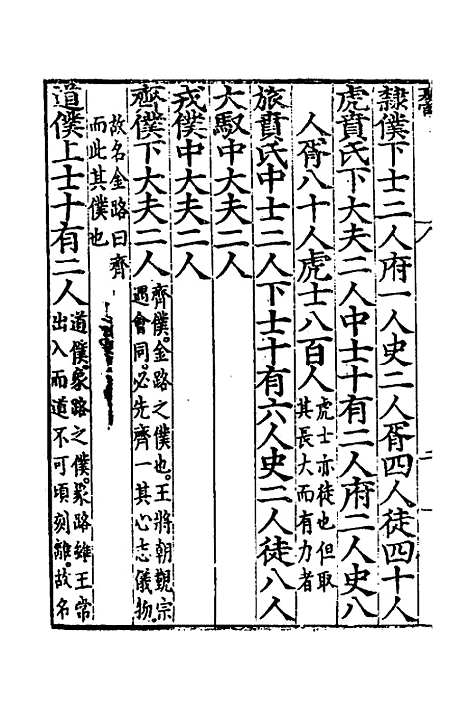 隸僕下士二人府一人史二人胥四人徒四十人
虎賁氏下大夫二人中士十有二人府二人史八
人胥八十人虎士八百人虎士亦徒也但取
其長大而有力者
旅賁氏中士二人下士十有六人史二人徒八人
大馭中大夫二人
戎僕中大夫二人
齊僕下大夫二人齊僕。金路之僕也。王將朝覲宗
遇會同。必先齊一其心志儀物。
故名金路曰齊
而此其僕也
道僕上士十有二人道僕。象路之僕。象路雖王常
出入而道不可頃刻離。故名